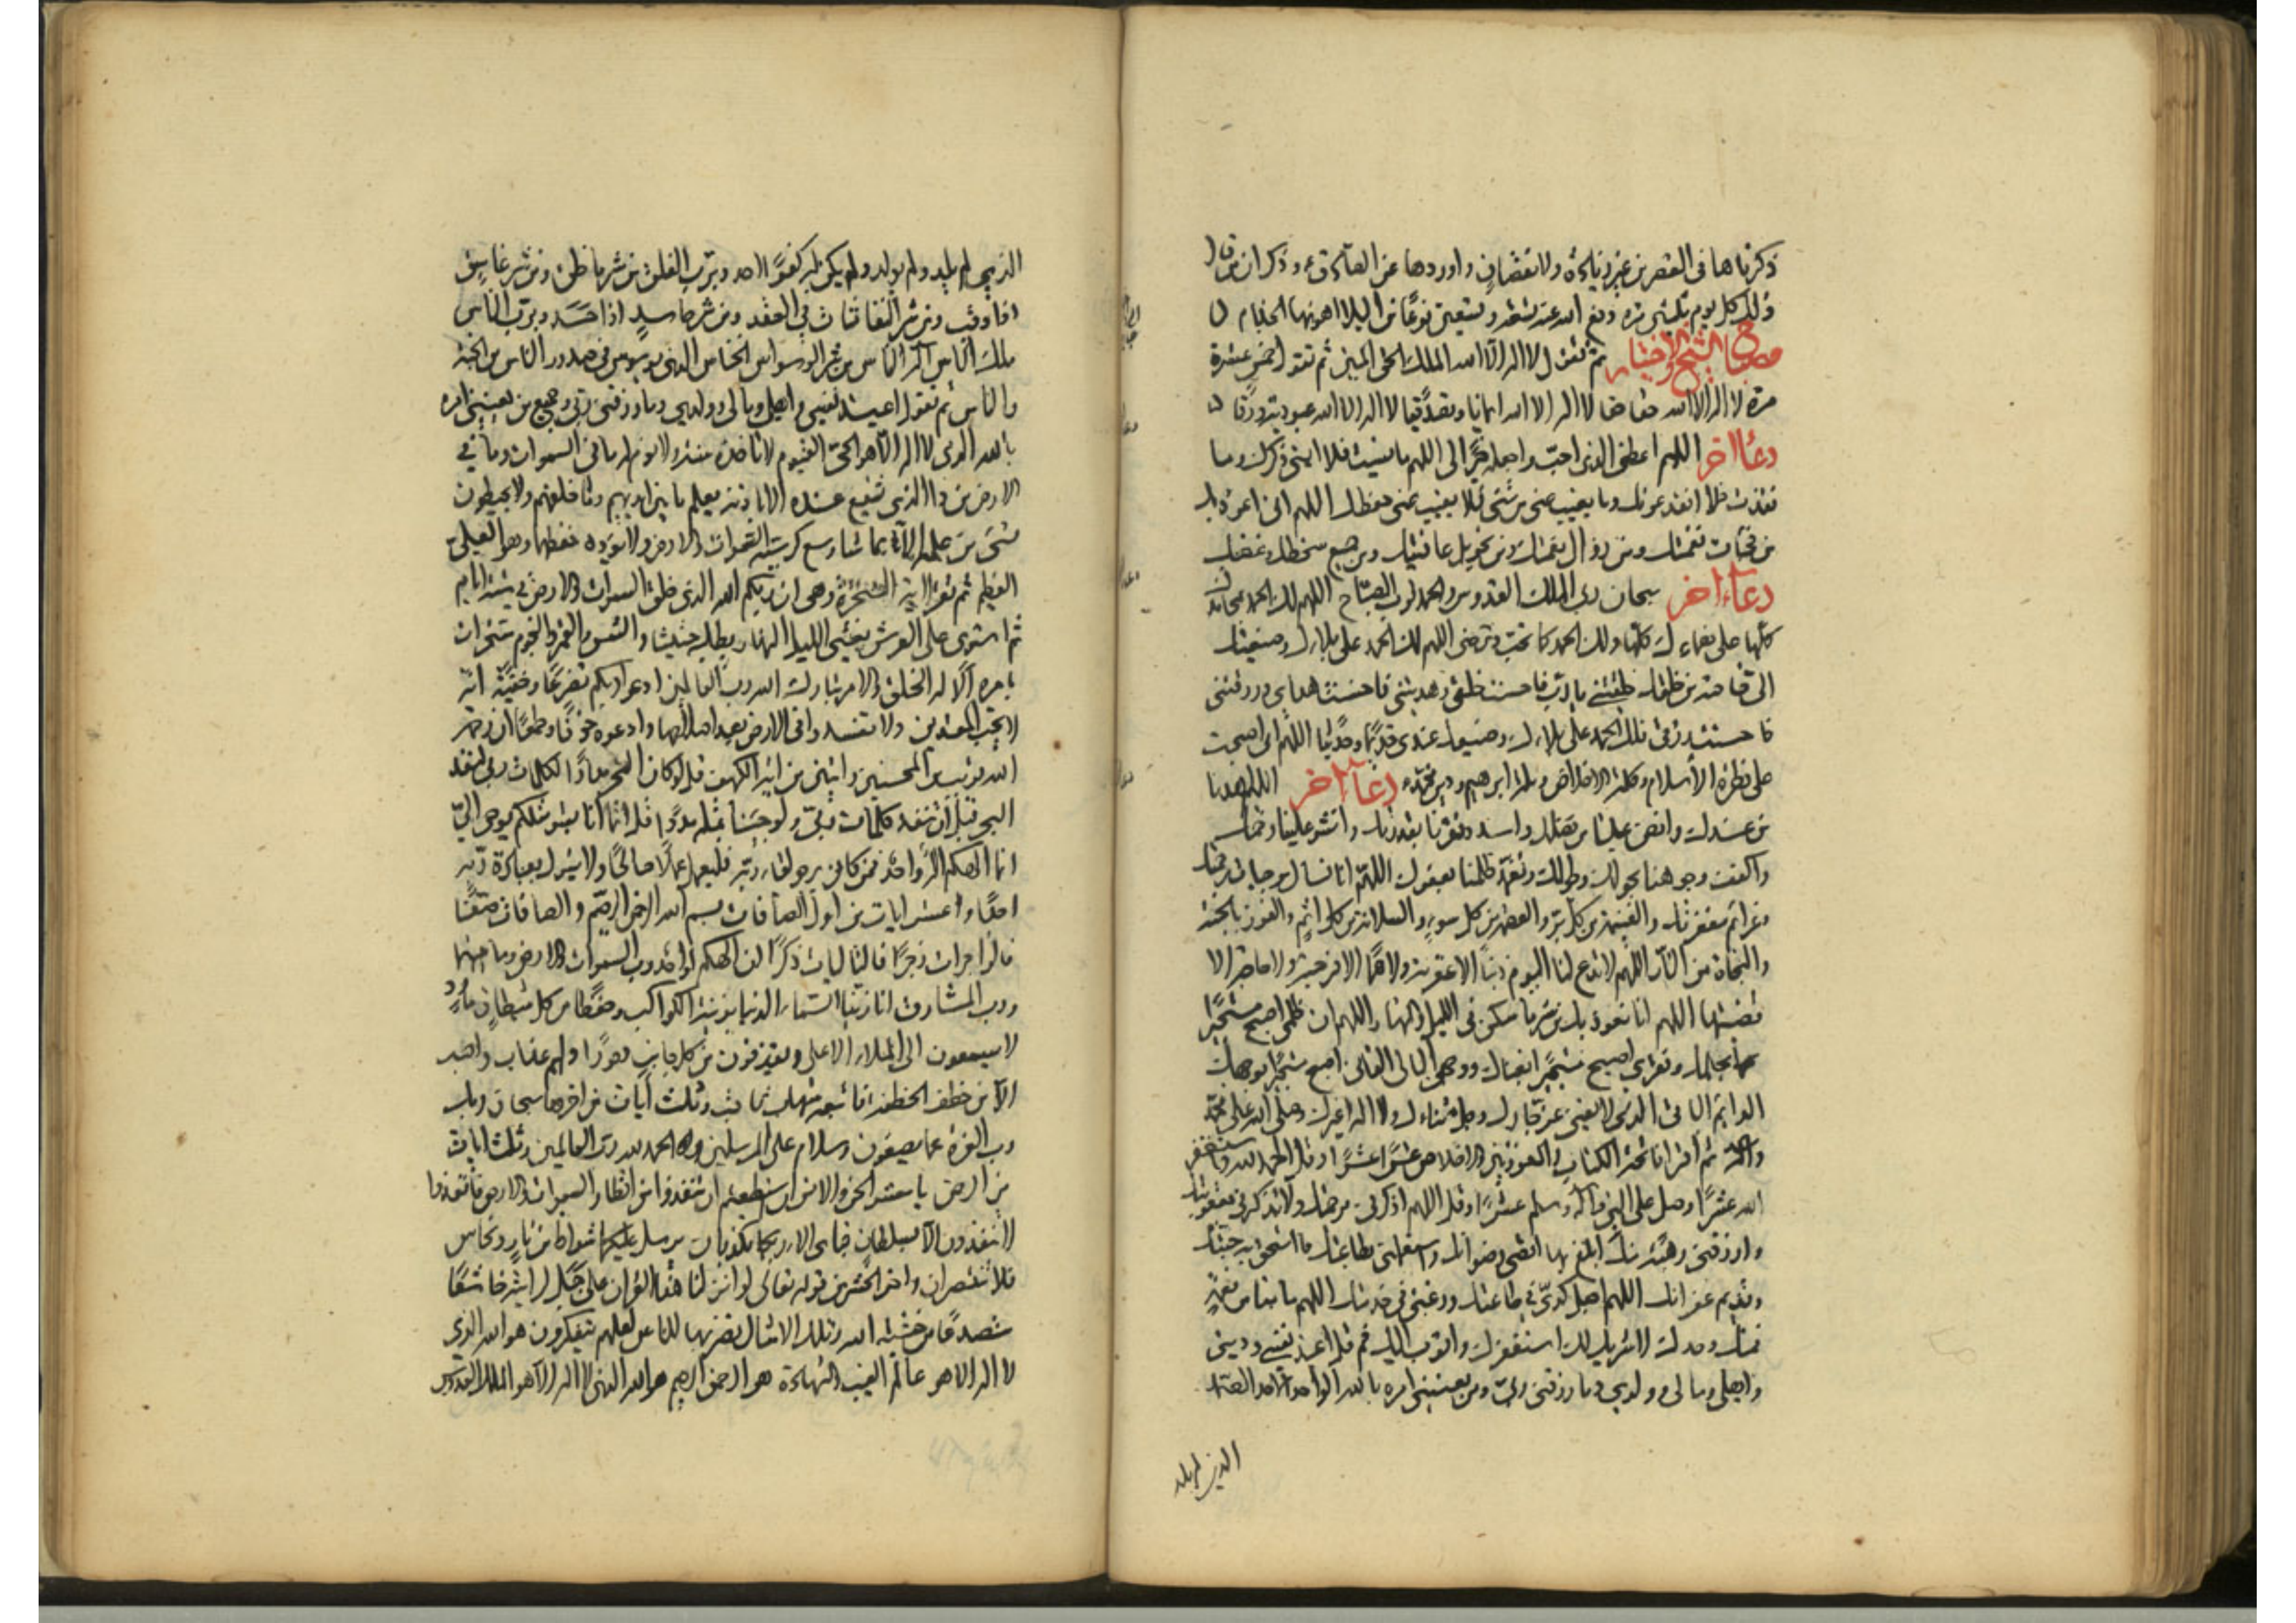 ذكرناها فى العصر من غير زيادة ولا نقصان واوردها عن الصادق ع وذكر ان من قال
ذلك كل يوم ثلثين مرة دفع الله عنه تسعة وتسعين نوعًا من البلاء اهونها الجذام
مصباح الشيخ والاختيار ثم تقول لا اله الا الله الملك الحق المبين ثم تقول خمس عشرة
مرة لا اله الا الله حقا حقا لا اله الا الله ايمانا وتصديقا لا اله الا الله عبودية ورقا
دعاء اخر اللهم اعطنى الذى احب واجعله خيرًا لى اللهم ما نسيت فلا انسى ذكرك وما
فقدت فلا افقد عونك وما يغيب عنى من شئ فلا يغيب عنى حفظك اللهم انى اعوذ بك
من فجأت نقمتك ومن زوال نعمتك ومن تحويل عافيتك ومن جميع سخطك وغضبك
دعاء اخر سبحان ربى الملك القدوس والحمد لرب الصباح اللهم لك الحمد بمحامدك
كلها على نعمائك كلها ولك الحمد كما تحب وترضى اللهم لك الحمد على بلائك وصنيعك
الى خاصة من خلقك خلقتنى يا رب فاحسنت خلقى وهديتنى فاحسنت هداى ورزقتنى
فاحسنت رزقى فلك الحمد على بلائك وصنيعك عندى قديمًا وحديثا اللهم انى اصبحت
على فطرة الاسلام وكلمة الاخلاص وملة ابراهيم ودين محمد دعاء اخر اللهم اهدنا
من عندك وافض علينا من فضلك واسدد فقرنا بقدرتك وانشر علينا رحمتك
واكفف وجوهنا بحولك وطولك وتغمد ظلمنا بعفوك اللهم انا نسالك موجبات رحمتك
وعزائم مغفرتك والغنيمة من كل بر والعصمة من كل سوء والسلامة من كل اثم والفوز بالجنة
والنجاة من النار اللهم لا تدع لنا اليوم ذنبًا الا غفرته ولا همًا الا فرجته ولا حاجة الا
قضيتها اللهم انا نعوذ بك من شر ما سكن فى الليل والنهار اللهم ان ظلمى اصبح مستجيرًا
بحلمك وفقرى اصبح مستجيرًا بغناك ووجهى البالى الفانى اصبح مستجيرًا بوجهك
الدائم الباقى الذى لا يفنى عز جارك وجل ثناءك ولا اله غيرك وصلى الله على محمد
وآله ثم اقرا فاتحة الكتاب والمعوذتين والاخلاص عشرًا عشرًا وقل الحمد لله واستغفر
الله عشرًا وصل على النبى وآله وسلم عشرًا وقل اللهم اذكرنى برحمتك ولا تذكرنى بعقوبتك
وارزقنى رهبة منك ابلغ بها اقصى رضوانك واستعملنى بطاعتك بما استحق به جنتك
وقديم غفرانك اللهم اجعل كدى فى طاعتك ورغبتى فى خدمتك اللهم ما بنا من نعمة
فمنك وحدك لا شريك لك استغفرك واتوب اليك ثم قل اعيذ نفسى ودينى
واهلى ومالى وولدى وما رزقنى ربى ومن يعنينى امره بالله الواحد الاحد الصمد
الذى لم يلد
الذى لم يلد ولم يولد ولم يكن له كفوًا احد وبرب الفلق من شر ما خلق ومن شر غاسق
اذا وقب ومن شر النفاثات فى العقد ومن شر حاسد اذا حسد وبرب الناس
ملك الناس اله الناس من شر الوسواس الخناس الذى يوسوس فى صدور الناس من الجنة
والناس ثم تقول اعيذ نفسى واهلى ومالى وولدى وما رزقنى ربى وجميع من يعنينى امره
بالله الذى لا اله الا هو الحى القيوم لا تاخذه سنة ولا نوم له ما فى السموات وما فى
الارض من ذا الذى يشفع عنده الا باذنه يعلم ما بين ايديهم وما خلفهم ولا يحيطون
بشئ من علمه الا بما شاء وسع كرسيه السموات والارض ولا يؤده حفظهما وهو العلى
العظيم ثم تقرا اية السخرة وهى ان ربكم الله الذى خلق السموات والارض فى ستة ايام
ثم استوى على العرش يغشى الليل النهار يطلبه حثيثا والشمس والقمر والنجوم مسخرات
بامره الا له الخلق والامر تبارك الله رب العالمين ادعوا ربكم تضرعًا وخفية انه
لا يحب المعتدين ولا تفسدوا فى الارض بعد اصلاحها وادعوه خوفًا وطمعًا ان رحمة
الله قريب من المحسنين وايتين من اخر الكهف قل لو كان البحر مدادًا لكلمات ربى لنفد
البحر قبل ان تنفد كلمات ربى ولو جئنا بمثله مددًا قل انما انا بشر مثلكم يوحى الى
انما الهكم اله واحد فمن كان يرجو لقاء ربه فليعمل عملًا صالحًا ولا يشرك بعبادة ربه
احدًا وعشر ايات من اول الصافات بسم الله الرحمن الرحيم والصافات صفًا
فالزاجرات زجرًا فالتاليات ذكرًا ان الهكم لواحد رب السموات والارض وما بينهما
ورب المشارق انا زينا السماء الدنيا بزينة الكواكب وحفظًا من كل شيطان مارد
لا يسمعون الى الملاء الاعلى ويقذفون من كل جانب دحورًا ولهم عذاب واصب
الا من خطف الخطفة فاتبعه شهاب ثاقب وثلث آيات من اخرها سبحان ربك
رب العزة عما يصفون وسلام على المرسلين والحمد لله رب العالمين وثلث ايات
من الرحمن يا معشر الجن والانس ان استطعتم ان تنفذوا من اقطار السموات والارض فانفذوا
لا تنفذون الا بسلطان فباى الاء ربكما تكذبان يرسل عليكما شواظ من نار ونحاس
فلا تنتصران واخر الحشر من قوله تعالى لو انزلنا هذا القران على جبل لرايته خاشعًا
متصدعًا من خشية الله وتلك الامثال نضربها للناس لعلهم يتفكرون هو الله الذى
لا اله الا هو عالم الغيب والشهادة هو الرحمن الرحيم هو الله الذى لا اله الا هو الملك القدوس